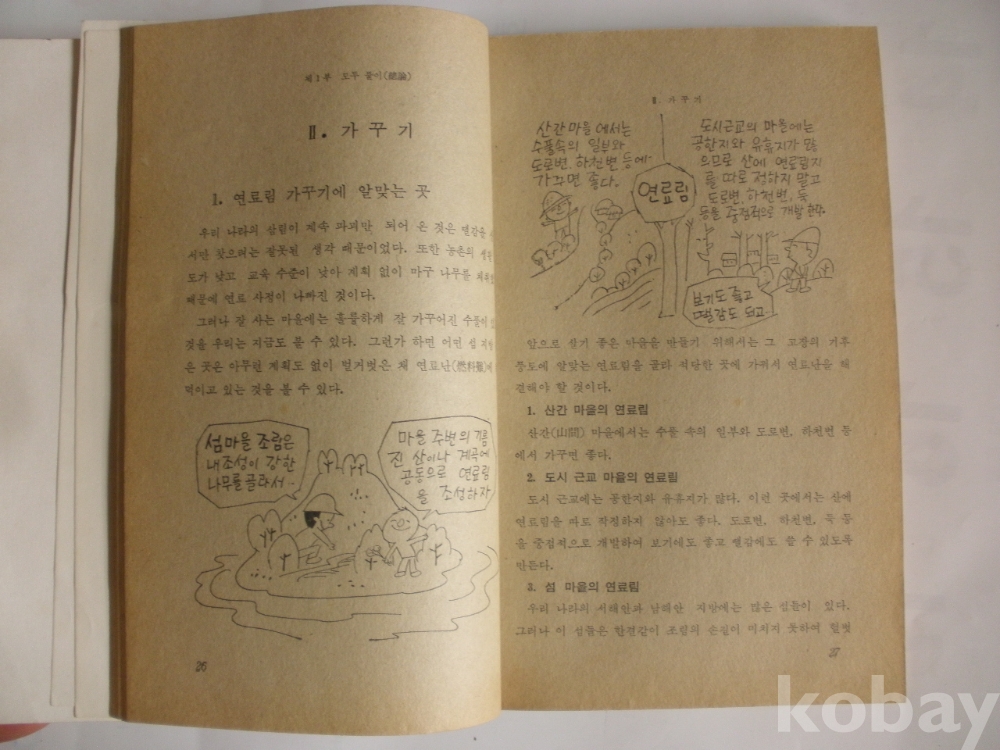 제1부 모두 풀이(總論)
Ⅱ. 가 꾸 기
1. 연료림 가꾸기에 알맞는 곳
우리 나라의 삼림이 계속 파괴만 되어 온 것은 땔감을
시만 찾으려는 잘못된 생각 때문이었다. 또한 농촌의
도가 낮고 교육 수준이 낮아 계획 없이 마구 나무를
때문에 연료 사정이 나빠진 것이다.
그러나 잘 사는 마을에는 훌륭하게 잘 가꾸어진 수풀이
것을 우리는 지금도 볼 수 있다. 그런가 하면 어떤 섬
은 곳은 아무런 계획도 없이 헐거벗은 채 연료난(燃料難)에
덕이고 있는 것을 볼 수 있다.
섬마을 조림은
내조성이 강한
나무를 골라서…
마을 주변의 기름
진 산이나 계곡에
공동으로 연료림
을 조성하자
26
Ⅱ. 가 꾸 기
산간마을에서는
수풀속의 일부와
도로변, 하천변 등에
가꾸면 좋다.
연료림
도시근교의 마을에는
공한지와 유휴지가 많
으므로 산에 연료림지
를 따로 정하지 말고
도로변, 하천변, 둑
등을 중점적으로 개발한다.
보기도 좋고
땔감도 되고…
앞으로 살기 좋은 마을을 만들기 위해서는 그 고장의 기후
풍토에 알맞는 연료림을 골라 적당한 곳에 가꿔서 연료난을 해
결해야 할 것이다.
1. 산간 마을의 연료림
산간(山間) 마을에서는 수풀 속의 일부와 도로변, 하천변 등
에서 가꾸면 좋다.
2. 도시 근교 마을의 연료림
도시 근교에는 공한지와 유휴지가 많다. 이런 곳에서는 산에
연료림을 따로 작정하지 않아도 좋다. 도로변, 하천변, 둑 등
을 중점적으로 개발하여 보기에도 좋고 땔감에도 쓸 수 있도록
만든다.
3. 섬 마을의 연료림
우리 나라의 서해안과 남해안 지방에는 많은 섬들이 있다.
그러나 이 섬들은 한결같이 조림의 손길이 미치지 못하여 헐벗
27
kobay